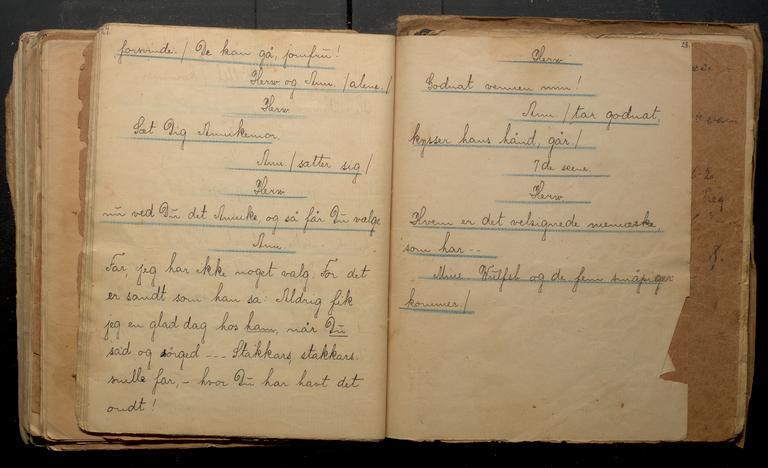 forsvinde. / De kan gå, jomfru!
Herw og Ann. / alene. /
Herw
Sæt Dig Annekemor.
Ann. / sætter sig /
Herw
nu ved Du det Anneke, og så får Du vælge.
Ann.
Far, jeg har ikke noget valg. For det
er sandt som han sa: Aldrig fik
jeg en glad dag hos ham, når Du
sad og sørged --- Stakkars, stakkars
snille far, – hvor Du har havt det
ondt!
28.
Herw
Godnat vennen min!
Ann / tar godnat,
kysser hans hånd, går. /
7de scene.
Herw
Hvem er det velsignede menneske,
som har --
Mine, Wulfst og de fem småpiger
kommer. /